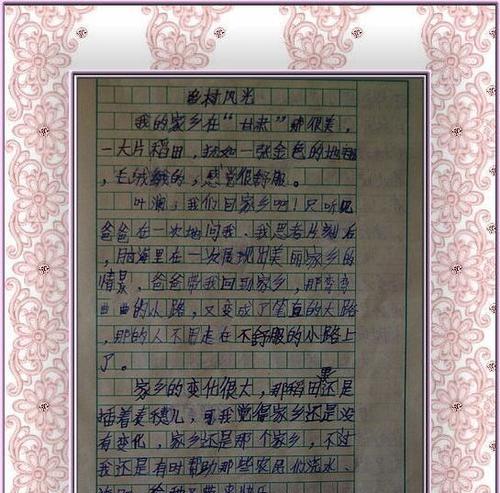 乡村风光
我的家乡在“甘肃”那很美，
一大片稻田，犹如一张金色的地毯
，毛绒绒的，感觉很舒服。
叶澜，我们回家乡吧！只听见
爸爸在一次地问我、我思考片刻后
，脑海里在一次展现出美丽家乡的
情景，爸爸带我回到家乡，那弯弯
曲曲的小路，又变成了笔直的大路
，那的人不用走在不舒服的小路上
了。
家乡的变化很大，那稻田里还是
插着麦穗儿，可我觉得家乡还是没
有变化，家乡还是那个家乡，不过
我还是有时帮助那些农居们浇水、